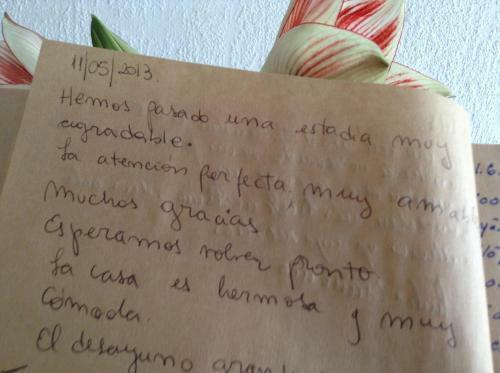 11/05/2013.
Hemos pasado una estadia muy
agradable.
La atención perfecta, muy
Muchos gracias
Esperamos volver pronto.
La casa es hermosa y muy
Cómoda.
El desayuno